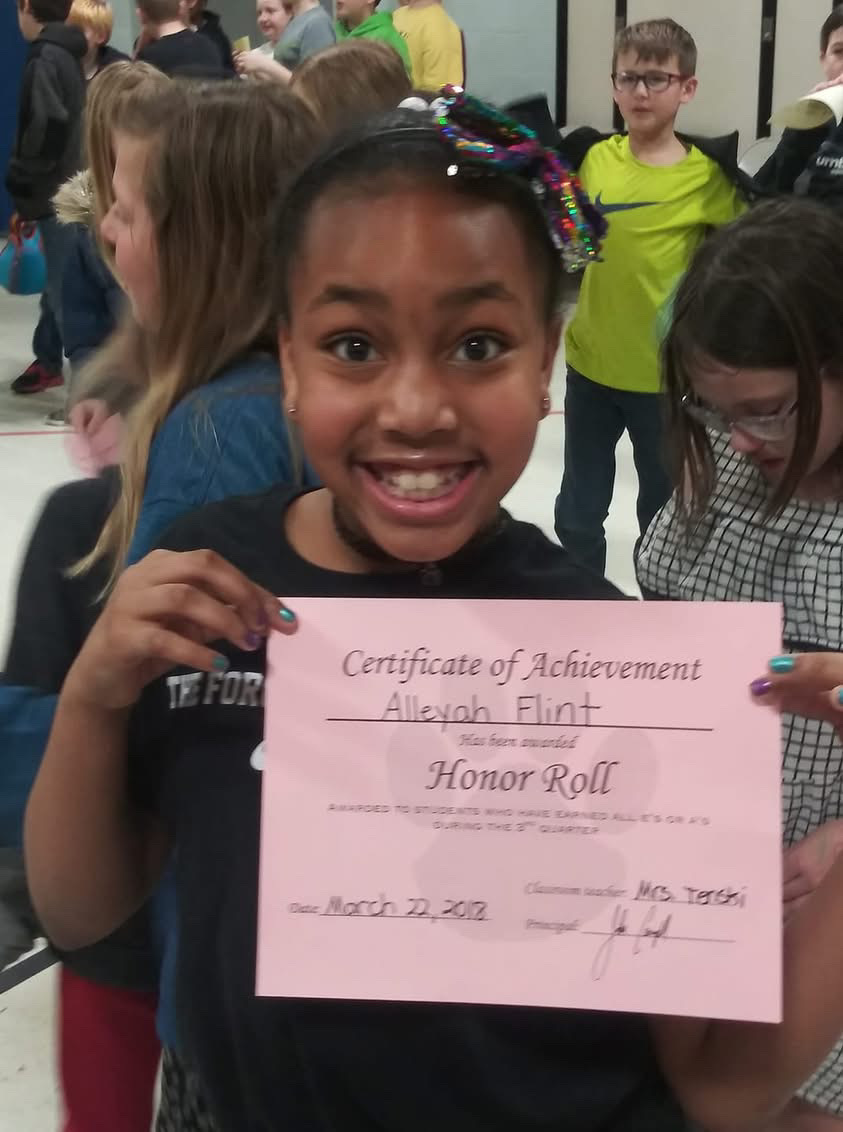 Certificate of Achievement
Alleyah Flint
Has been awarded
Honor Roll
AWARDED TO STUDENTS WHO HAVE EARNED ALL E'S OR A'S
DURING THE 3RD QUARTER
Classroom teacher: Mrs. Tenski
Date: March 22, 2018
Principal:
THE FOR